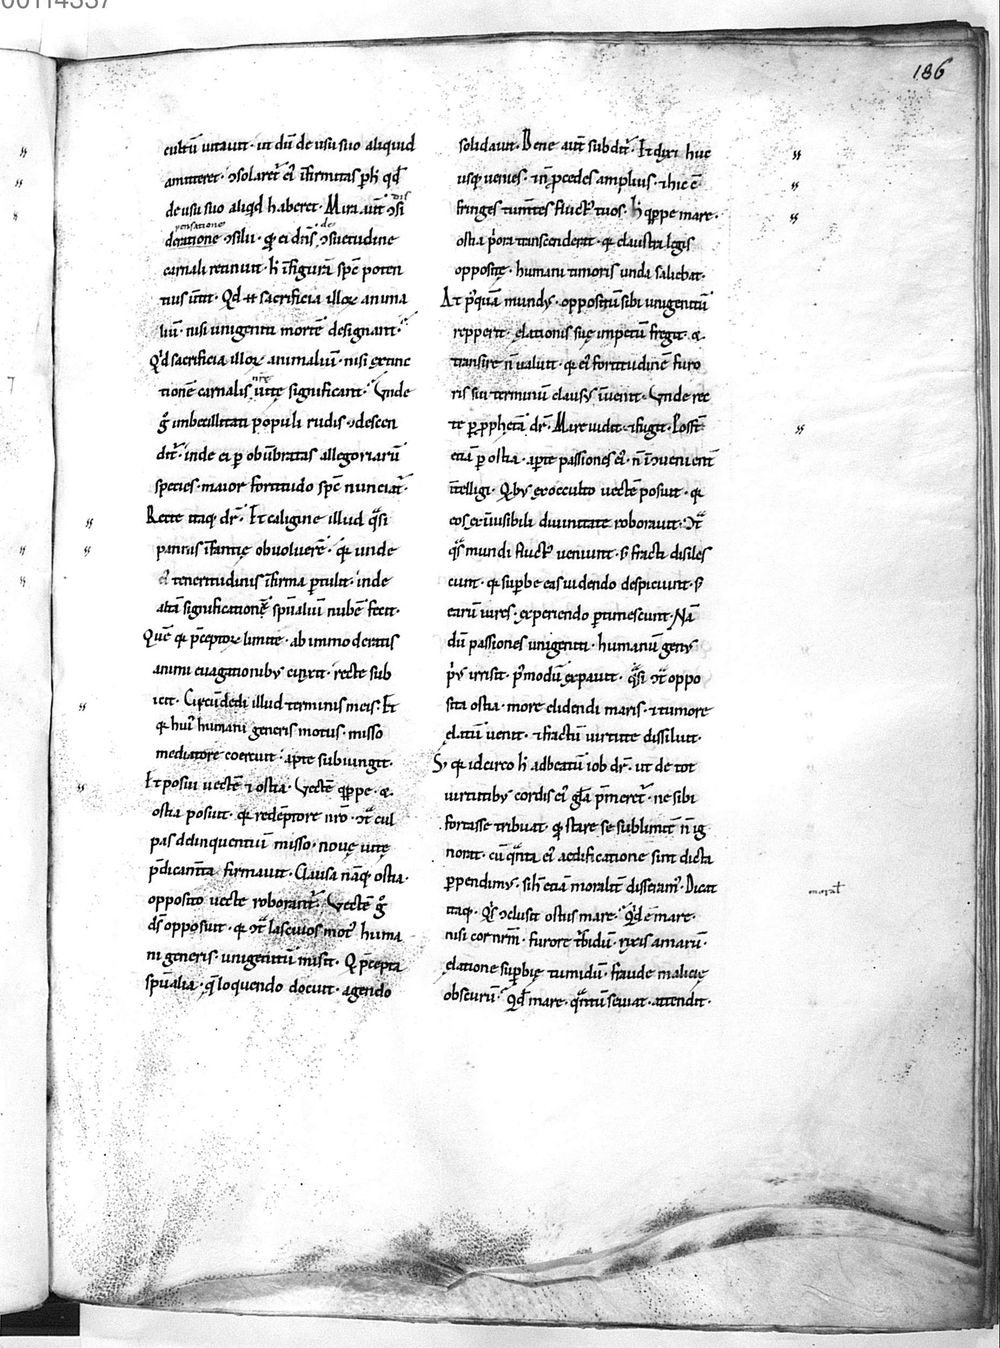 00114337
186
cultū vitavit · ut dū de usu suo aliquid
amitteret · ɔsolaret᷑ ei᷑ īfirmitas ꝑ h̄ qđ
de usu suo aliqd haberet · Mira aut̄ ɔsi
deratione ɔsilii · q̄ ei dn̄s ɔsuetudine
carnali retinuit · h̄ ī figurā spē poten
tius vtit᷑ · Qđ ⁊ sacrificia illoꝝ anima
liū · nisi unigeniti mortē designant᷑
Qđ sacrificia illoꝝ animaliū · nisi extinc
tionē carnalis vitę significant᷑ · Unde
g̊ imbecillitati populi rudis · ɔdescen
dit᷑ · inde ei ꝑ obūbratas allegoriarū
species · maior fortitudo spē nunciat᷑ ·
Recte itaq; dr᷑ · Et caligine illud q̄si
pannis īfantię obvoluerē · q̄ unde
ei᷑ teneritudinis īfirma ꝑtulit · inde
altā significationē sp̄ualiū nubē fecit ·
Quē q; p̄ceptoꝝ limite · ab immoderatis
animi evagationib; cinxit · recte sub
iecit · Circūdedi illud terminis meis · Et
q; hui᷑ humani generis motus · misso
mediatore coercuit · apte subiungit ·
Et posui vectē ⁊ ostia · Vectē q̄ppe · ⁊
ostia posuit · q; redēptore nr̄o · ɔt᷑ cul
pas delinquentiū misso · novę vitę
p̄dicam̄ta firmavit · Clausa nāq; ostia ·
opposito vecte roborant᷑ · Vectē g̊
dš opposuit · q; ɔt᷑ lascivos mot᷑ huma
ni generis · unigenitū misit · Q p̄cepta
sp̄ualia · q̄ loquendo docuit · agendo
solidavit · Bene aut̄ subdit᷑ · Et dixi huc
usq; venies · ⁊ n̄ ꝓcedes amplius · ⁊ hic c̄
fringes tumētes fluct᷑ tuos · h̄ q̄ppe mare ·
ostia p̄ora transcenderat · q; claustra legis
oppositę · humani timoris unda saliebat ·
At p᷑quā mund; · oppositū sibi unigenitū
repperit · elationis suę impetū fregit · ⁊
transire n̄ valuit · q; ei᷑ fortitudinē furo
ris sui terminū claus; īvenit · Unde rec
te ꝑ ꝓphetā dr᷑ · Mare vidit · ⁊ fugit · Possit᷑
etiā ꝑ ostia · apte passiones ei᷑ · n̄ īɔvenient᷑
ītelligi · Qb; ex occulto vectē posuit · q;
eos ex īvisibili divinitate roboravit · ɔt᷑
q᷑s mundi fluct᷑ veniunt · s̄ fracti disiles
cunt · q; supbe eas videndo despiciunt · s̄
earū vires · experiendo ꝑtimescunt · Nā
dū passiones unigeniti · humanū gen;
p᷑; irrisit · p᷑modū expavit · q̄si ɔt᷑ oppo
sita ostia · more elidendi maris · ⁊ tumore
elatū venit · ⁊ fractū virtute dissiluit ·
S; q; idcirco h̄ ad beatū iob dr᷑ · ut de tot
virtutib; cordis ei᷑ gr̄a p̄meret᷑ · ne sibi
fortasse tribuat · q̊ stare se sublimit᷑ n̄ ig
norat · cū q̄nta ei᷑ aedificatione sint dicta
ꝑpendim; · si h̄ etiā moralit᷑ disseram᷑ · Dicat
itaq; · Q᷑s ɔclusit ostiis mare · Qđ ē mare ·
nisi cor nr̄m · furore t᷑bidū · rixis amarū ·
elatione supbię tumidū · fraude malicię
obscurū · Qđ mare · q̄ntū seviat · attendit ·
moral᷑